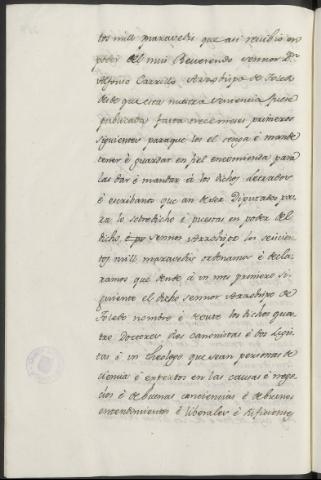 tos mill maravedis que asi recibio en
poder del mui Reverendo sennor Dn
Alfonso Carrillo Arzobispo de Toledo
desde que esta nuestra sentencia fuere
publicada fasta trece meses primeros
siguientes para que los el tenga é mande
tener é guardar en fiel encomienda para
las dar é mandar á los dichos letrados
é escribanos que an de ser Diputados pa
ra lo sobredicho é puestos en poder del
dicho sennor Arzobispo los seiscien
tos mill maravedis ordenamos é decla
ramos que dende á un mes primero si
guiente el dicho sennor Arzobispo de
Toledo nombre é los dichos qua
tro Doctores dos canonistas é dos Legis
tas é un Theologo que sean personas de
ciencia é expertos en las causas é nego
cios é de buenas conciencias é de buenos
entendimientos é liberales é